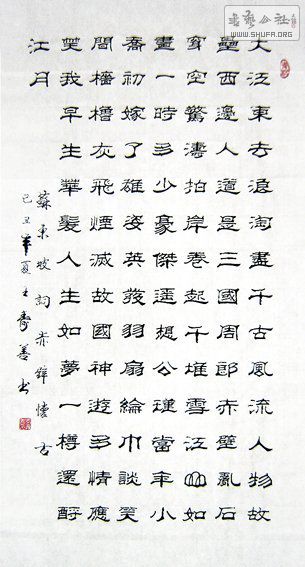 大江東去浪淘盡千古風流人物故
壘西邊人道是三國周郎赤壁亂石
穿空驚濤拍岸卷起千堆雪江山如
畫一時多少豪傑遙想公瑾當年小
喬初嫁了雄姿英發羽扇綸巾談笑
間檣櫓灰飛煙滅故國神遊多情應
笑我早生華髮人生如夢一樽還酹
江月
蘇東坡詞赤壁懷古
己丑年夏王壽善书
WWW.SHUFA.ORG